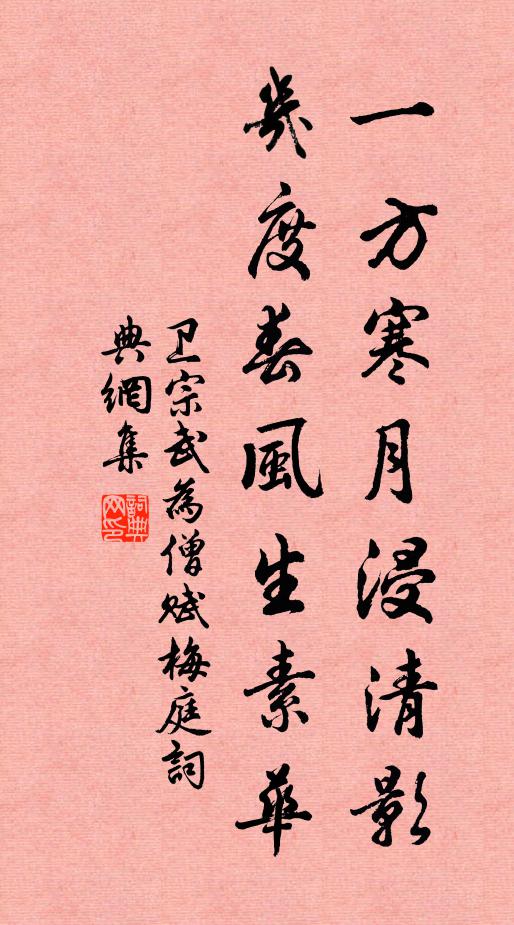 一方寒月浸清影
幾度春風生素華
卫宗武為僧賦梅庭詞
典網集
詞典
网印